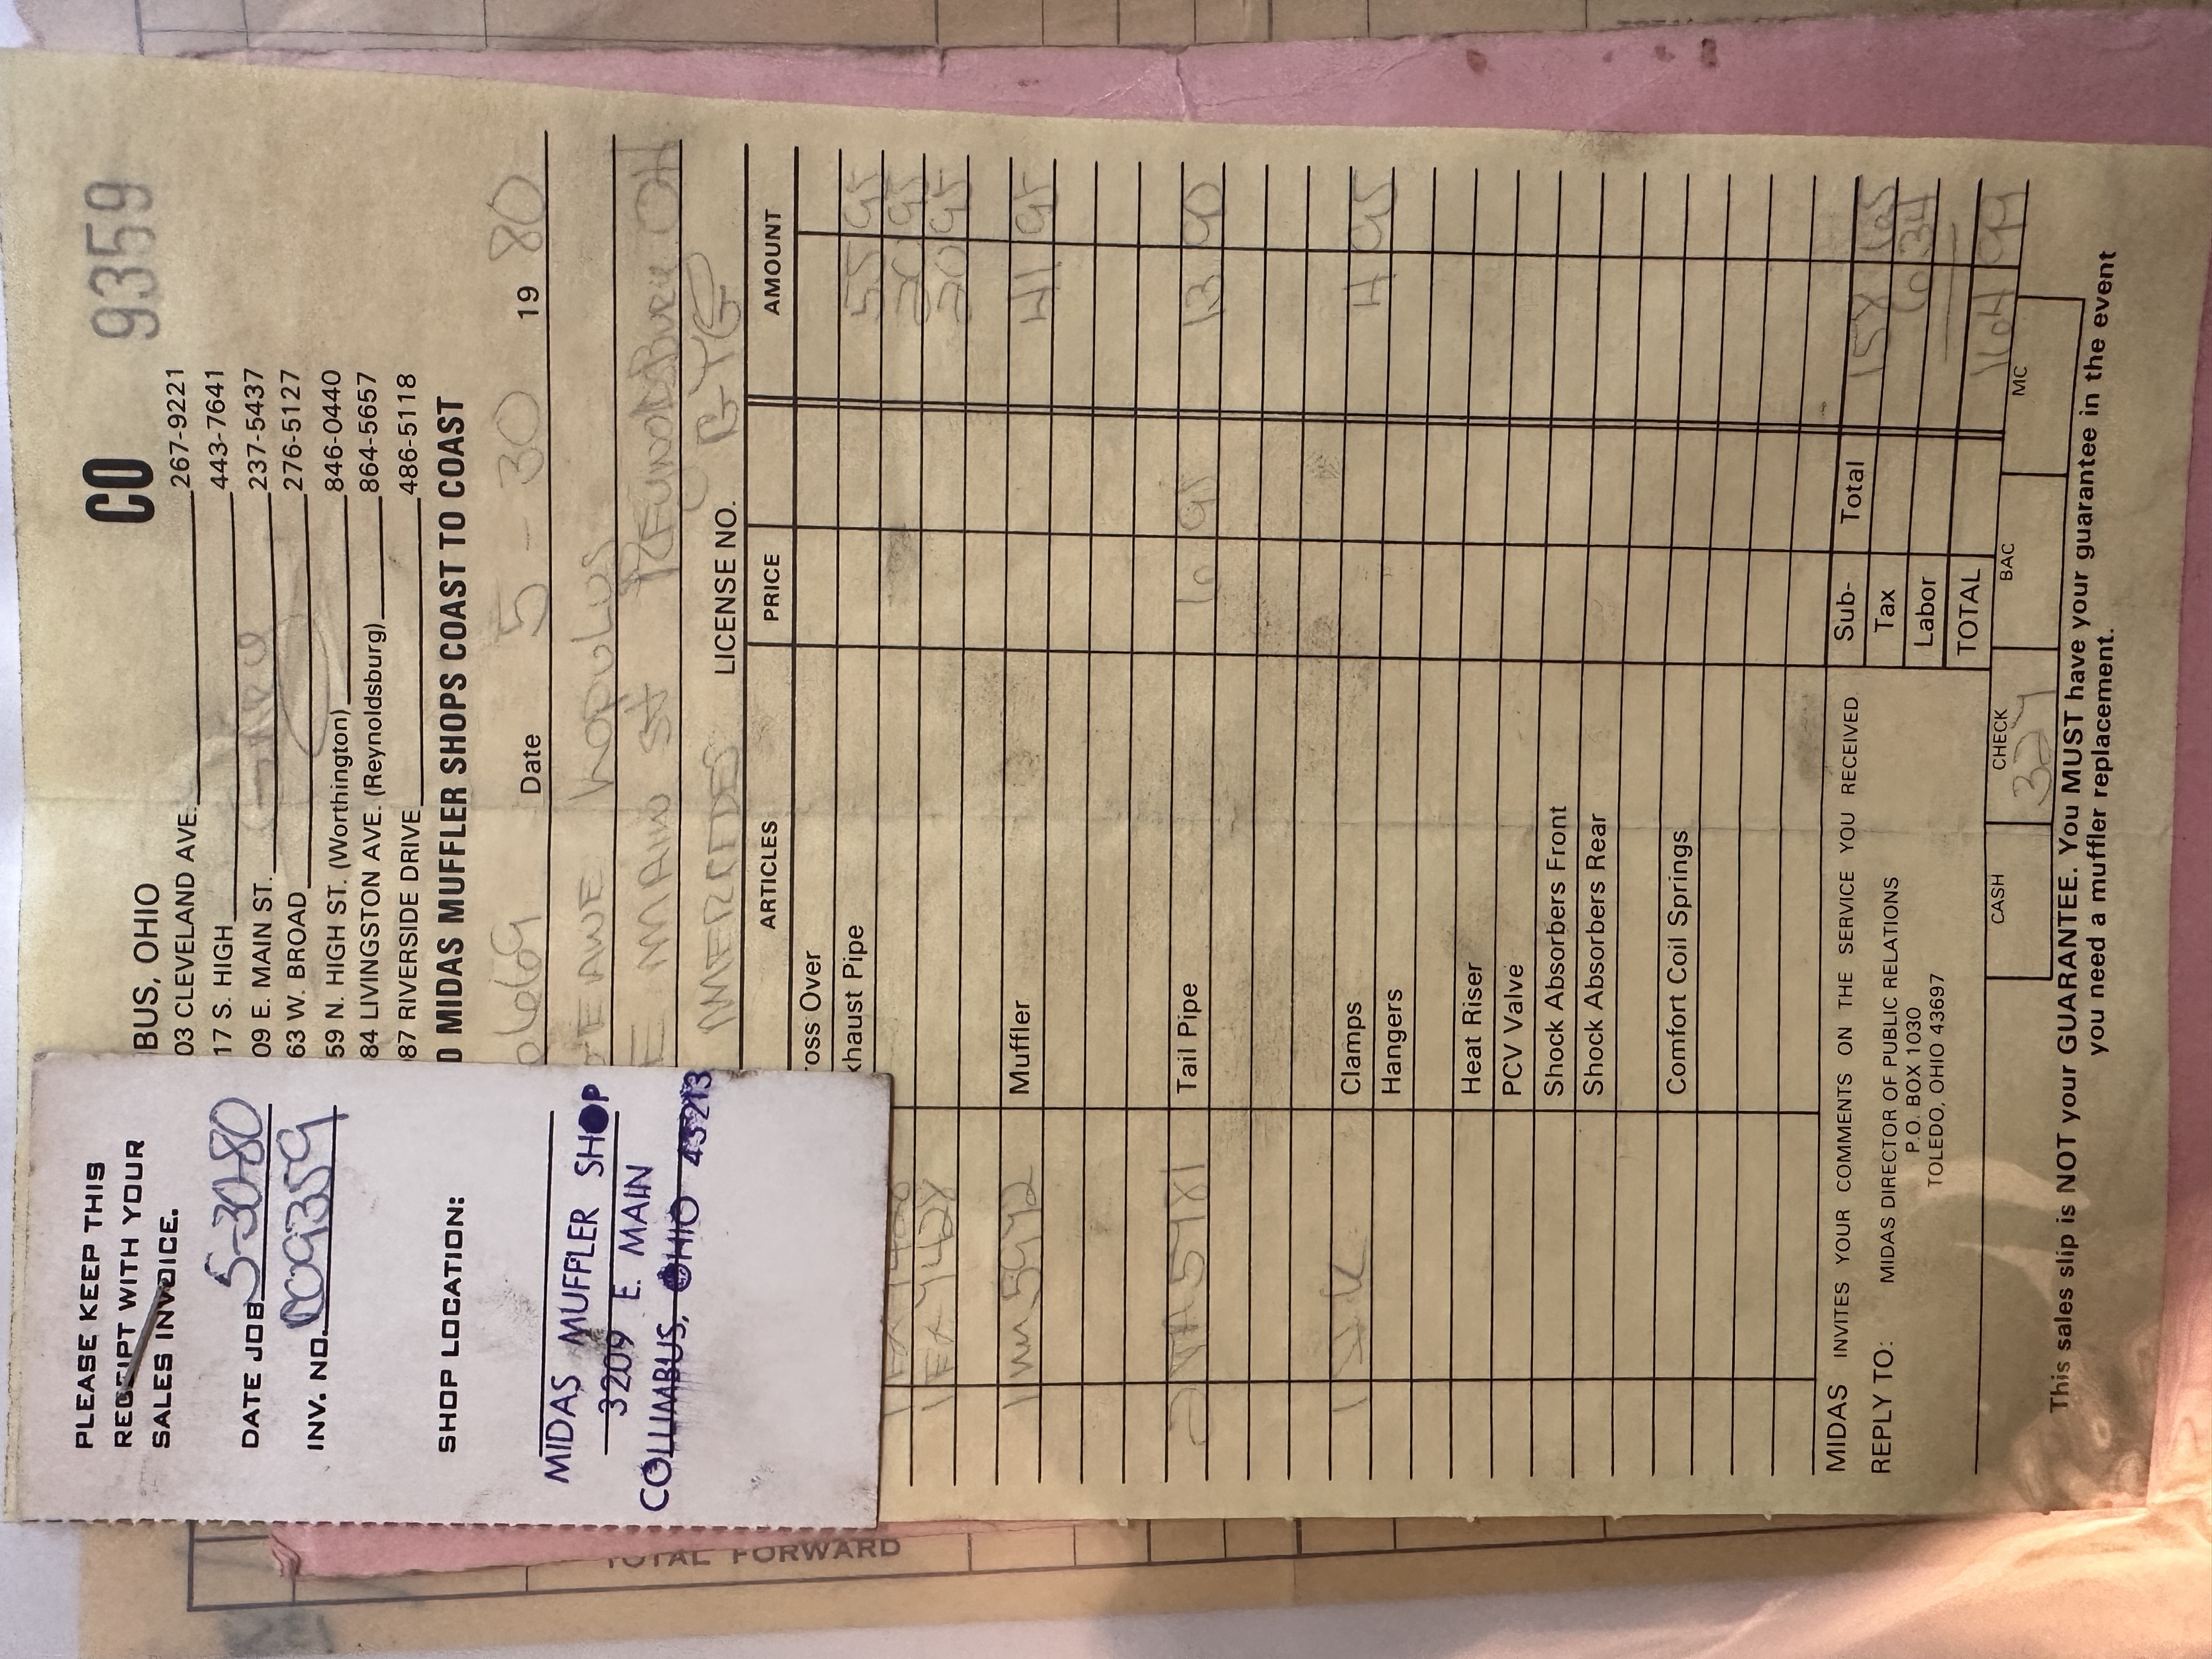 PLEASE KEEP THIS
RECEIPT WITH YOUR
SALES INVOICE.
DATE JOB 5-30-80
INV. NO. CO9359
SHOP LOCATION:
MIDAS MUFFLER SHOP
3209 E. MAIN
COLUMBUS, OHIO 43213
CO 9359
BUS, OHIO
03 CLEVELAND AVE. 267-9221
17 S. HIGH 443-7641
09 E. MAIN ST. 237-5437
63 W. BROAD 276-5127
59 N. HIGH ST. (Worthington) 846-0440
84 LIVINGSTON AVE. (Reynoldsburg) 864-5657
87 RIVERSIDE DRIVE 486-5118
D MIDAS MUFFLER SHOPS COAST TO COAST
Date 5-30 19 80
E MAIN St OH
MERCEDES LICENSE NO.
ARTICLES PRICE AMOUNT
ross Over
xhaust Pipe 55 95
20 95
20 95
Muffler 41 95
Tail Pipe 6 95 13 90
Clamps 4 95
Hangers
Heat Riser
PCV Valve
Shock Absorbers Front
Shock Absorbers Rear
Comfort Coil Springs
Sub-Total 158 65
Tax 6 34
Labor
TOTAL 164 99
MIDAS INVITES YOUR COMMENTS ON THE SERVICE YOU RECEIVED
REPLY TO: MIDAS DIRECTOR OF PUBLIC RELATIONS
P.O. BOX 1030
TOLEDO, OHIO 43697
CASH CHECK BAC MC
This sales slip is NOT your GUARANTEE. You MUST have your guarantee in the event
you need a muffler replacement.
TOTAL FORWARD